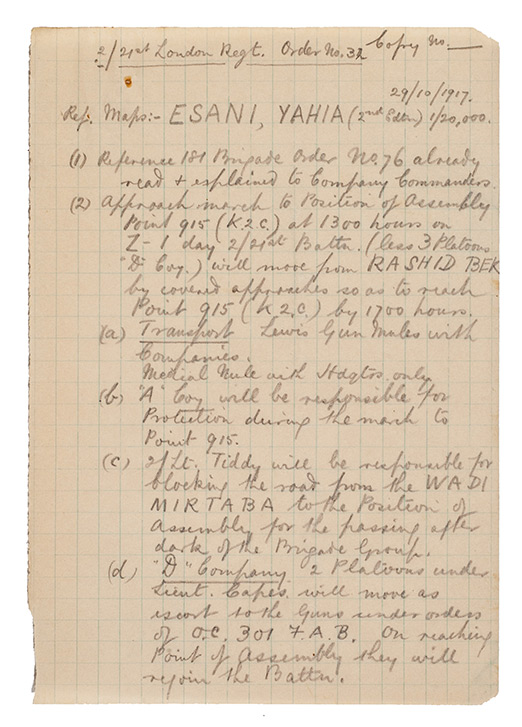 2/21st London Regt. Order No. 32 Copy No. —
29/10/1917.
Ref. Maps:- ESANI, YAHIA (2nd Edtn) 1/20,000.
(1) Reference 181 Brigade Order No. 76 already
read + explained to Company Commanders.
(2) Approach march to Position of Assembly
Point 915 (K2.C.) at 1300 hours on
Z-1 day 2/21st Battn. (less 3 Platoons
"D" Coy.) will move from RASHID BEK
by covered approaches so as to reach
Point 915 (K2.C.) by 1700 hours.
(a) Transport Lewis Gun Mules with
Companies.
Medical Mule with Hdqtrs. only
(b) "A" Coy will be responsible for
Protection during the march to
Point 915.
(c) 2/Lt. Tiddy will be responsible for
blocking the road from the WADI
MIRTABA to the Position of
Assembly for the passing after
dark of the Brigade Group.
(d) "D" Company 2 Platoons under
Lieut. Capes will move as
escort to the Guns under orders
of O.C. 301 F.A.B. On reaching
Point of Assembly they will
rejoin the Battn.